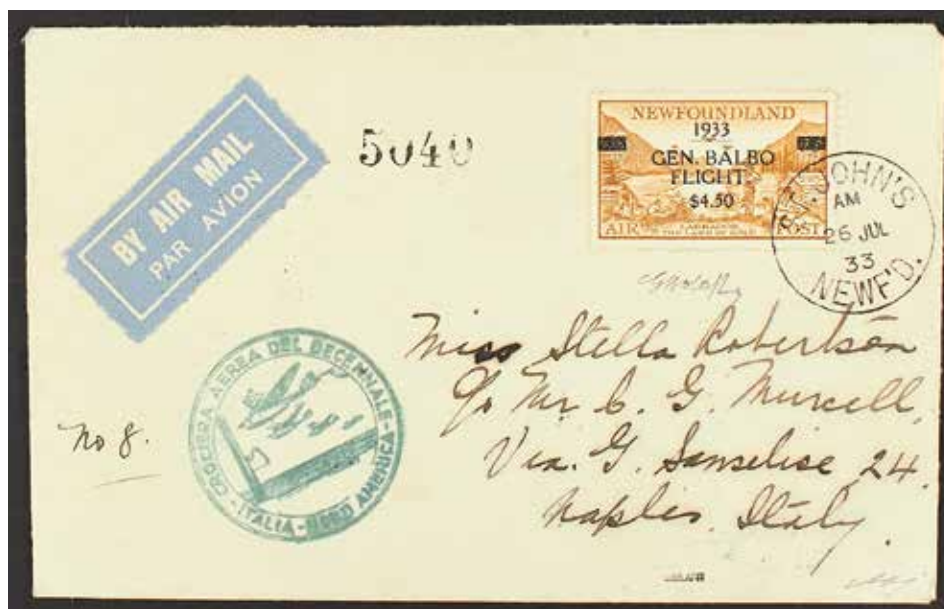 BY AIR MAIL
PAR AVION
5040
NEWFOUNDLAND
1933
GEN. BALBO
FLIGHT
$4.50
LABRADOR
THE LAND OF GOLD
AIR POST
ST. JOHN'S
AM
26 JUL
33
NEWF'D.
Miss Stella Robertson
c/o Mr. C. G. Murcell,
Via. G. 24.
Naples, Italy.
No 8.
CROCIERA AEREA DEL DECENNALE
ITALIA - NORD AMERICA